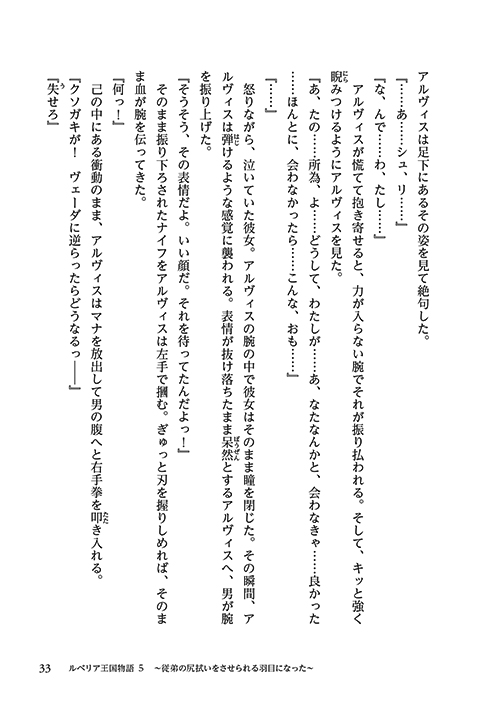 アルヴィスは足下にあるその姿を見て絶句した。
『……あ……シュ、リ……』
『な、んで……わ、たし……』
アルヴィスが慌てて抱き寄せると、力が入らない腕でそれが振り払われる。そして、キッと強く
睨みつけるようにアルヴィスを見た。
『あ、たの……所為、よ……どうして、わたしが……あ、なたなんかと、会わなきゃ……良かった
……ほんとに、会わなかったら……こんな、おも……』
『……』
怒りながら、泣いていた彼女。アルヴィスの腕の中で彼女はそのまま瞳を閉じた。その瞬間、ア
ルヴィスは弾けるような感覚に襲われる。表情が抜け落ちたまま呆然とするアルヴィスへ、男が腕
を振り上げた。
『そうそう、その表情だよ。いい顔だ。それを待ってたんだよっ！』
そのまま振り下ろされたナイフをアルヴィスは左手で摑む。ぎゅっと刃を握りしめれば、そのま
ま血が腕を伝ってきた。
『何っ！』
己の中にある衝動のまま、アルヴィスはマナを放出して男の腹へと右手拳を叩き入れる。
『クソガキが！　ヴェーダに逆らったらどうなるっ――』
『失せろ』
33 ルベリア王国物語 5 ～従弟の尻拭いをさせられる羽目になった～